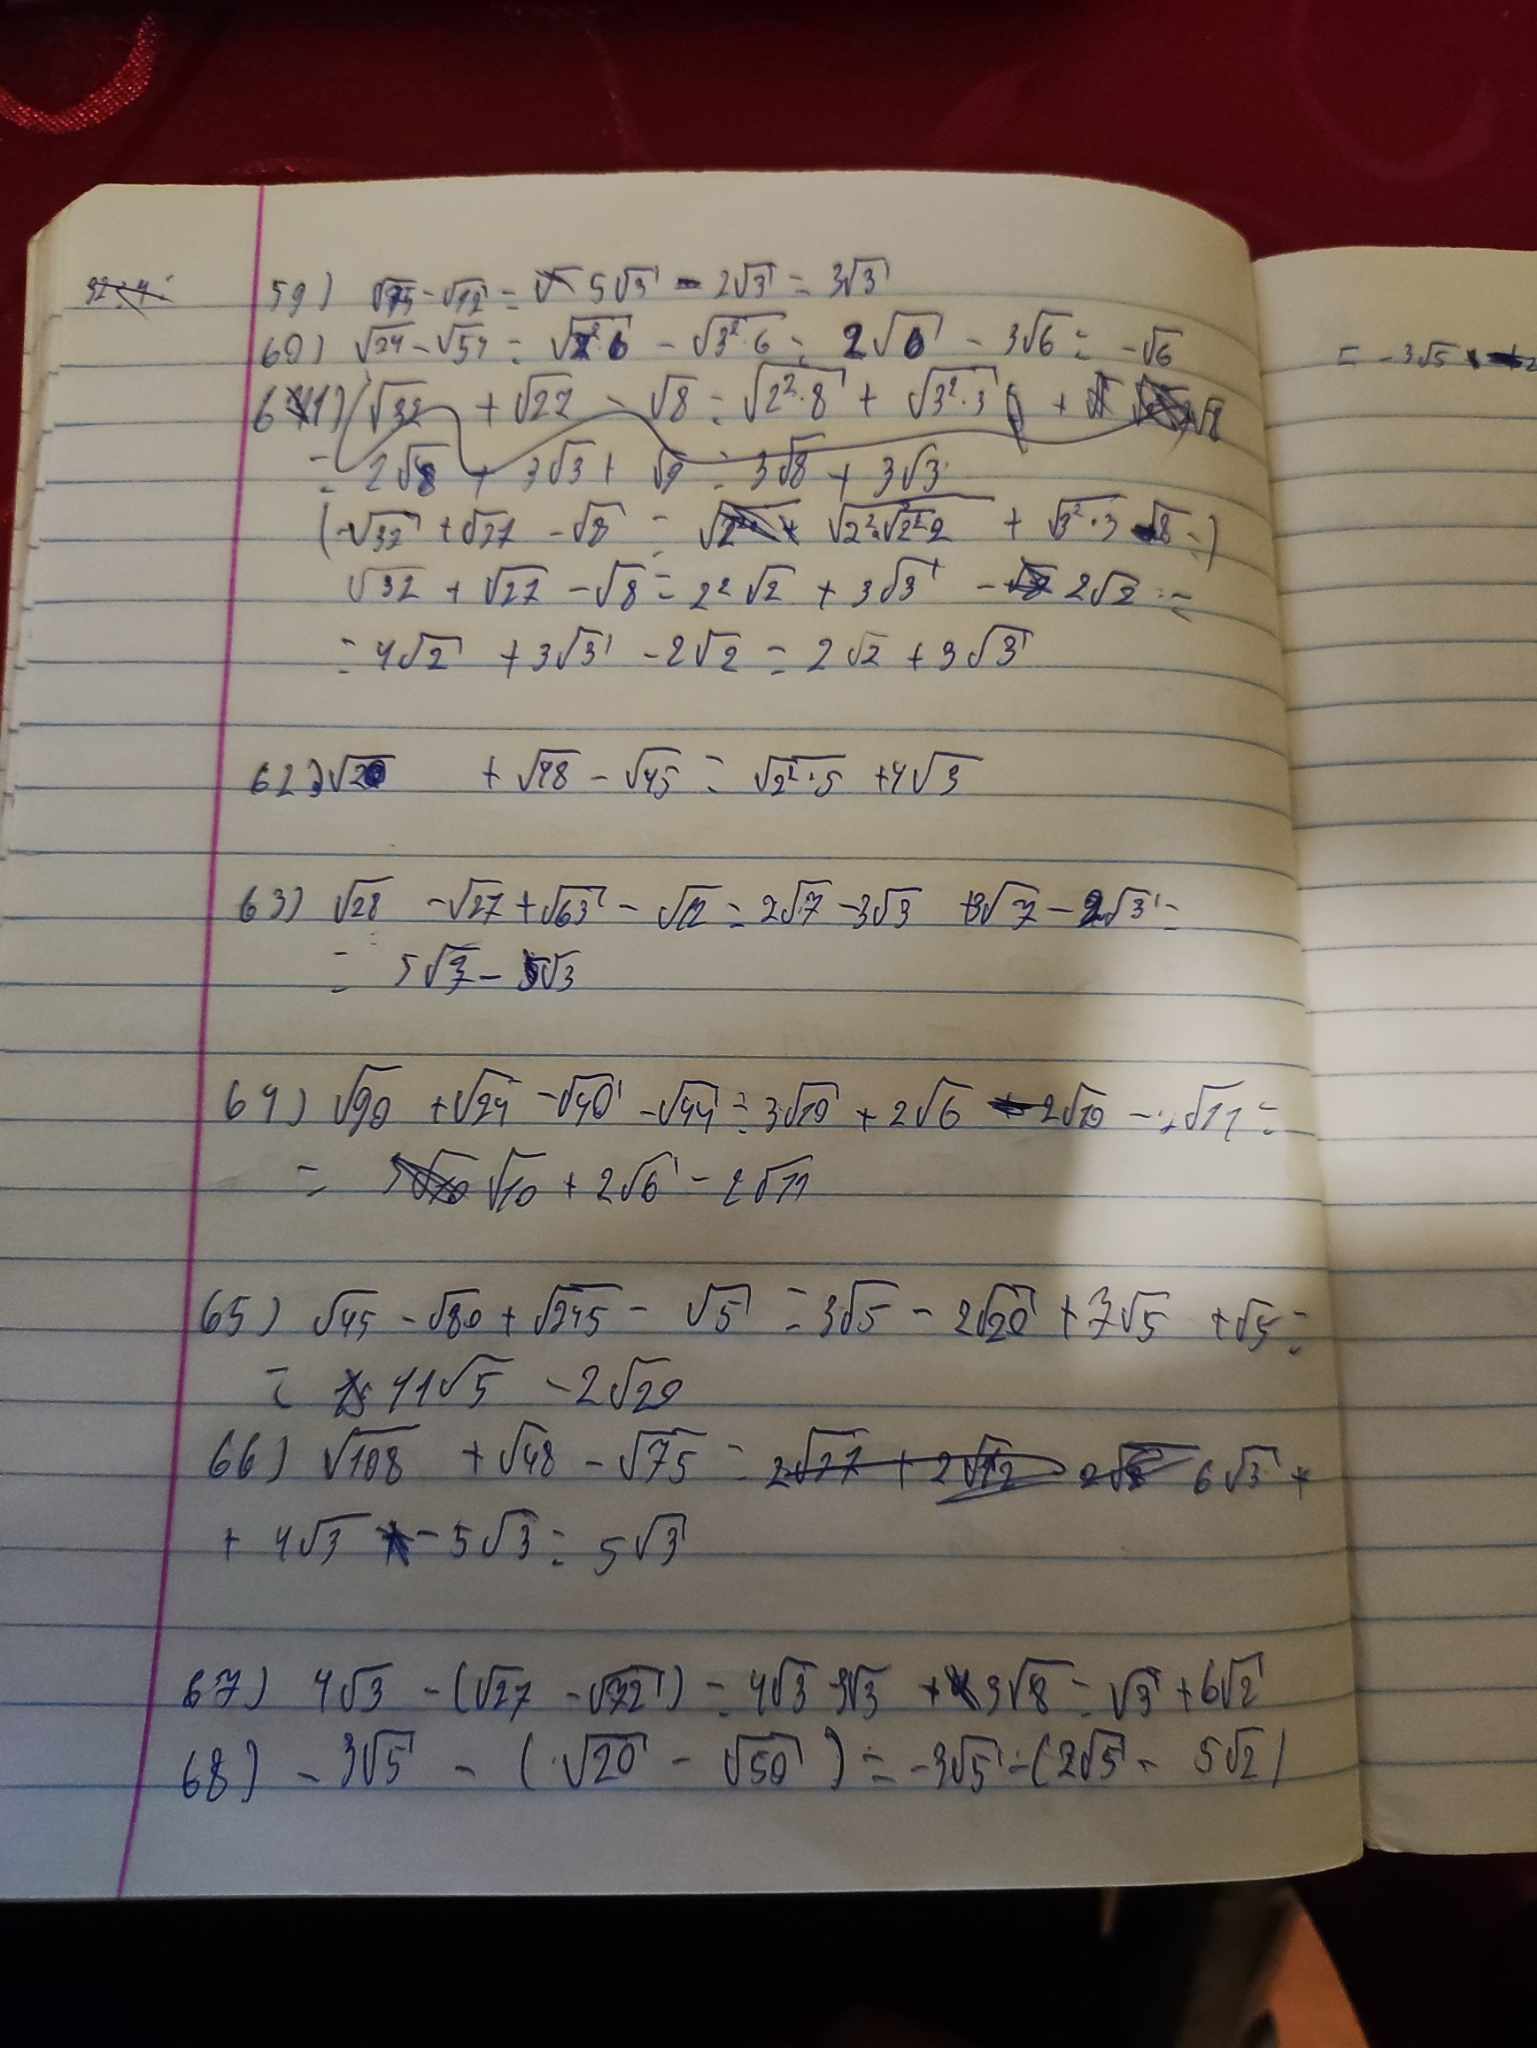 59) √75 - √12 = 5√3 - 2√3 = 3√3
60) √24 - √54 = √2²·6 - √3²·6 = 2√6 - 3√6 = -√6
61) √32 + √27 - √8 = √2²·8 + √3²·3 + √8
= 2√8 + 3√3 + √8 = 3√8 + 3√3
(√32 + √27 - √8 = √2²·√2²·2 + √3²·3 - √8 =)
√32 + √27 - √8 = 2²√2 + 3√3 - 2√2 =
= 4√2 + 3√3 - 2√2 = 2√2 + 3√3
62) √20 + √48 - √45 = √2²·5 + 4√3
63) √28 - √27 + √63 - √12 = 2√7 - 3√3 + 3√7 - 2√3 =
= 5√7 - 5√3
64) √90 + √24 - √40 - √44 = 3√10 + 2√6 - 2√10 - 2√11 =
= √10 + 2√6 - 2√11
65) √45 - √80 + √245 - √5 = 3√5 - 2√20 + 7√5 + √5 =
= 11√5 - 2√20
66) √108 + √48 - √75 = 2√27 + 2√12 6√3 +
+ 4√3 - 5√3 = 5√3
67) 4√3 - (√27 - √72) = 4√3 - 3√3 + 3√8 = √3 + 6√2
68) - 3√5 - (√20 - √50) = -3√5 - (2√5 - 5√2)
= -3√5